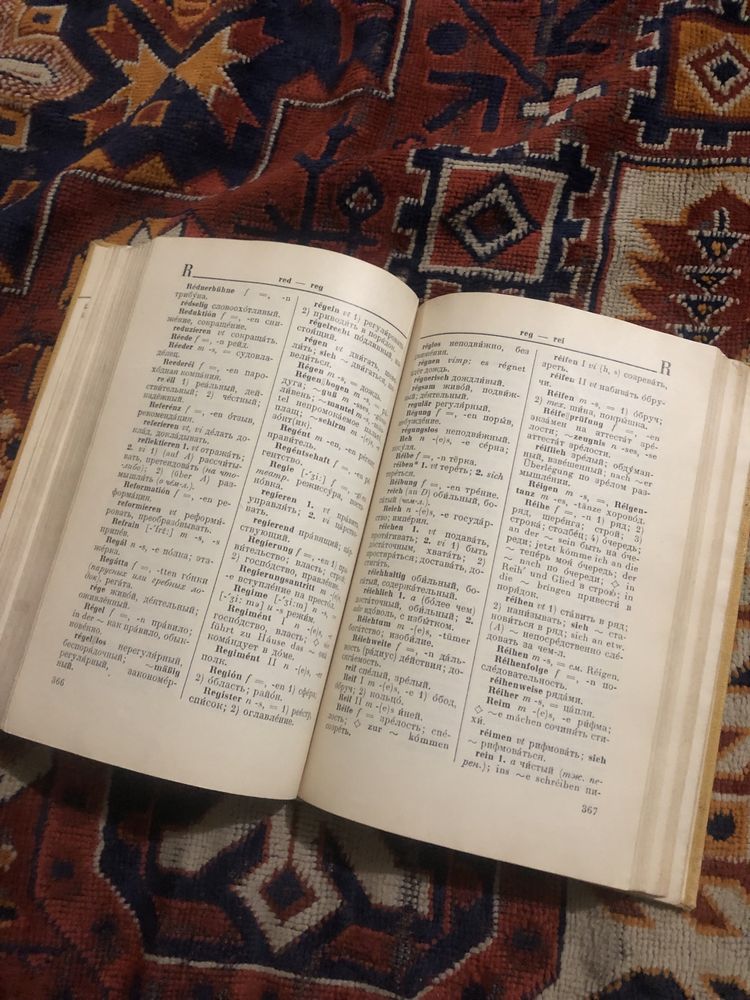 R
red — reg
Rédnerbühne f =, -n
трибу́на.
rédselig словоохо́тливый.
Reduktión f =, -en сни-
же́ние, сокраще́ние.
reduzíeren vt сокраща́ть.
Réede f =, -n рейд.
Réeder m -s, = судовла-
де́лец.
Reederéi f =, -en паро-
хо́дная компа́ния.
re:éll 1) реа́льный, дей-
стви́тельный; 2) че́стный;
надёжный.
Referénz f =, -en о́тзыв,
рекоменда́ция.
referíeren vt де́лать до-
кла́д, докла́дывать.
reflektíeren 1. vt отража́ть;
2. vi 1) (auf A) рассчи́ты-
вать, претендова́ть (на что-
-либо); 2) (über A) раз-
мышля́ть (о чём-л.).
Reformatión f =, -en ре-
форма́ция.
reformíeren vt реформи́-
ровать, преобразо́вывать.
Refrain m -s, -s
припе́в.
Regál n -s, -e по́лка; эта-
же́рка.
Regátta f =, -tten го́нки
(парусных или гребных ло-
док), рега́та.
rége живо́й, де́ятельный;
оживлённый.
Régel f =, -n пра́вило;
in der ~ как пра́вило, обык-
нове́нно.
régel||los нерегуля́рный,
беспоря́дочный; ~mäßig
регуля́рный, закономе́р-
ный.
366
régeln vt 1) регули́ровать
2) приводи́ть в поря́док
régelrecht по́длинный, на-
стоя́щий.
régen vt дви́гать, шеве-
ли́ть; sich ~ дви́гаться, ше-
вели́ться.
Régen m -s, = дождь.
Régen||bogen m -s, = ра́-
дуга; ~guß m -sses, -güsse
ли́вень; ~mantel m -s, -män-
tel непромока́емое пальто́,
плащ; ~schirm m -(e)s, -e
зонт(ик).
Regént m -en, -en ре́гент,
прави́тель.
Regéntschaft f =, -en ре́-
гентство.
Regíe [-'ʒi:] f =, -'ʒi:en
театр. режиссу́ра, поста-
но́вка.
regíeren 1. vt пра́вить,
управля́ть; 2. vi ца́рство-
вать.
regíerend пра́вящий, ца́р-
ствующий.
Regíerung f =, -en 1) пра-
ви́тельство; власть; строй;
2) госпо́дство, правле́ние.
Regíerungsantritt m -(e)s,
-e вступле́ние на престо́л.
Regime [-'ʒi:m] n -s, =
[-'ʒi:mə] u -s режи́м.
Regimént I n -(e)s, -e
госпо́дство, власть; ◇ sie
führt zu Háuse das ~ она́
кома́ндует в до́ме.
Regimént II n -(e)s, -er
полк.
Región f =, -en 1) сфе́ра;
2) о́бласть; райо́н.
Regíster n -s, = 1) рее́стр,
спи́сок; 2) оглавле́ние.
reg — rei
R
réglos неподви́жно, без
движе́ния.
régnen vimp: es régnet
идёт дождь.
régnerisch дождли́вый.
régsam живо́й, подви́ж-
ный; де́ятельный.
regulär регуля́рный.
Régung f =, -en поры́в,
побужде́ние.
régungslos неподви́жный.
Reh n -(e)s, -e се́рна;
косу́ля.
Réibe f =, -n тёрка.
réiben* 1. vt тере́ть; 2. sich
тере́ться.
Réibung f =, -en тре́ние.
reich (an D) оби́льный, бо-
га́тый (чем-л.).
Reich n -(e)s, -e госуда́р-
ство; импе́рия.
réichen 1. vt подава́ть,
протя́гивать; 2. vi 1) быть
доста́точным, хвата́ть; 2)
простира́ться; достава́ть, до-
стига́ть.
réichhaltig оби́льный, бо-
га́тый, содержа́тельный.
réichlich 1. a (бо́лее чем)
доста́точный, оби́льный; 2.
adv вдо́воль, с избы́тком.
Réichtum m -(e)s, -tümer
бога́тство; изоби́лие.
Réichweite f =, -n да́ль-
ность (ра́диус) де́йствия; до-
сяга́емость.
reif спе́лый, зре́лый.
Reif I m -(e)s, -e 1) о́бод,
о́бруч; 2) кольцо́.
Reif II m -(e)s и́ней.
Réife f = зре́лость; спе́-
лость; ◇ zur ~ kómmen
созре́ть.
réifen I vi (h, s) созрева́ть,
зреть.
réifen II vt набива́ть о́бру-
чи.
Réifen m -s, = 1) о́бруч;
2) тех. ши́на, покры́шка.
Réife||prüfung f =, -en
экза́мен на аттеста́т зре́-
лости; ~zeugnis n -ses, -se
аттеста́т зре́лости.
réiflich зре́лый; обду́ман-
ный, взве́шенный; nach ~er
Überlégung по зре́лом раз-
мышле́нии.
Réigen m -s, =, Réigen-
tanz m -es, -tänze хорово́д.
Réihe f =, -n 1) ряд; 2)
ряд, шере́нга; строй; 3)
строка́; столбе́ц; 4) о́чередь;
an der ~ sein быть на о́че-
реди; jetzt kómme ich an die
~ тепе́рь моя́ о́чередь; der
~ nach по о́череди; ◇ in
Reih' und Glied в строю́; in
die ~ bríngen привести́ в
поря́док.
réihen vt 1) ста́вить в ряд;
2) нани́зывать; sich ~ ста-
нови́ться в ряд; sich an etw.
(A) ~ непосре́дственно сле́-
довать за чем-л.
Réihen m -s, = см. Réigen.
Réihenfolge f =, -n по-
сле́довательность.
réihenweise ряда́ми.
Réiher m -s, = ца́пля.
Reim m -(e)s, -e ри́фма;
◇ ~e máchen сочиня́ть сти-
хи́.
réimen vt рифмова́ть; sich
~ рифмова́ться.
rein 1. a чи́стый (тж. пе-
рен.); ins ~e schréiben пи-
367